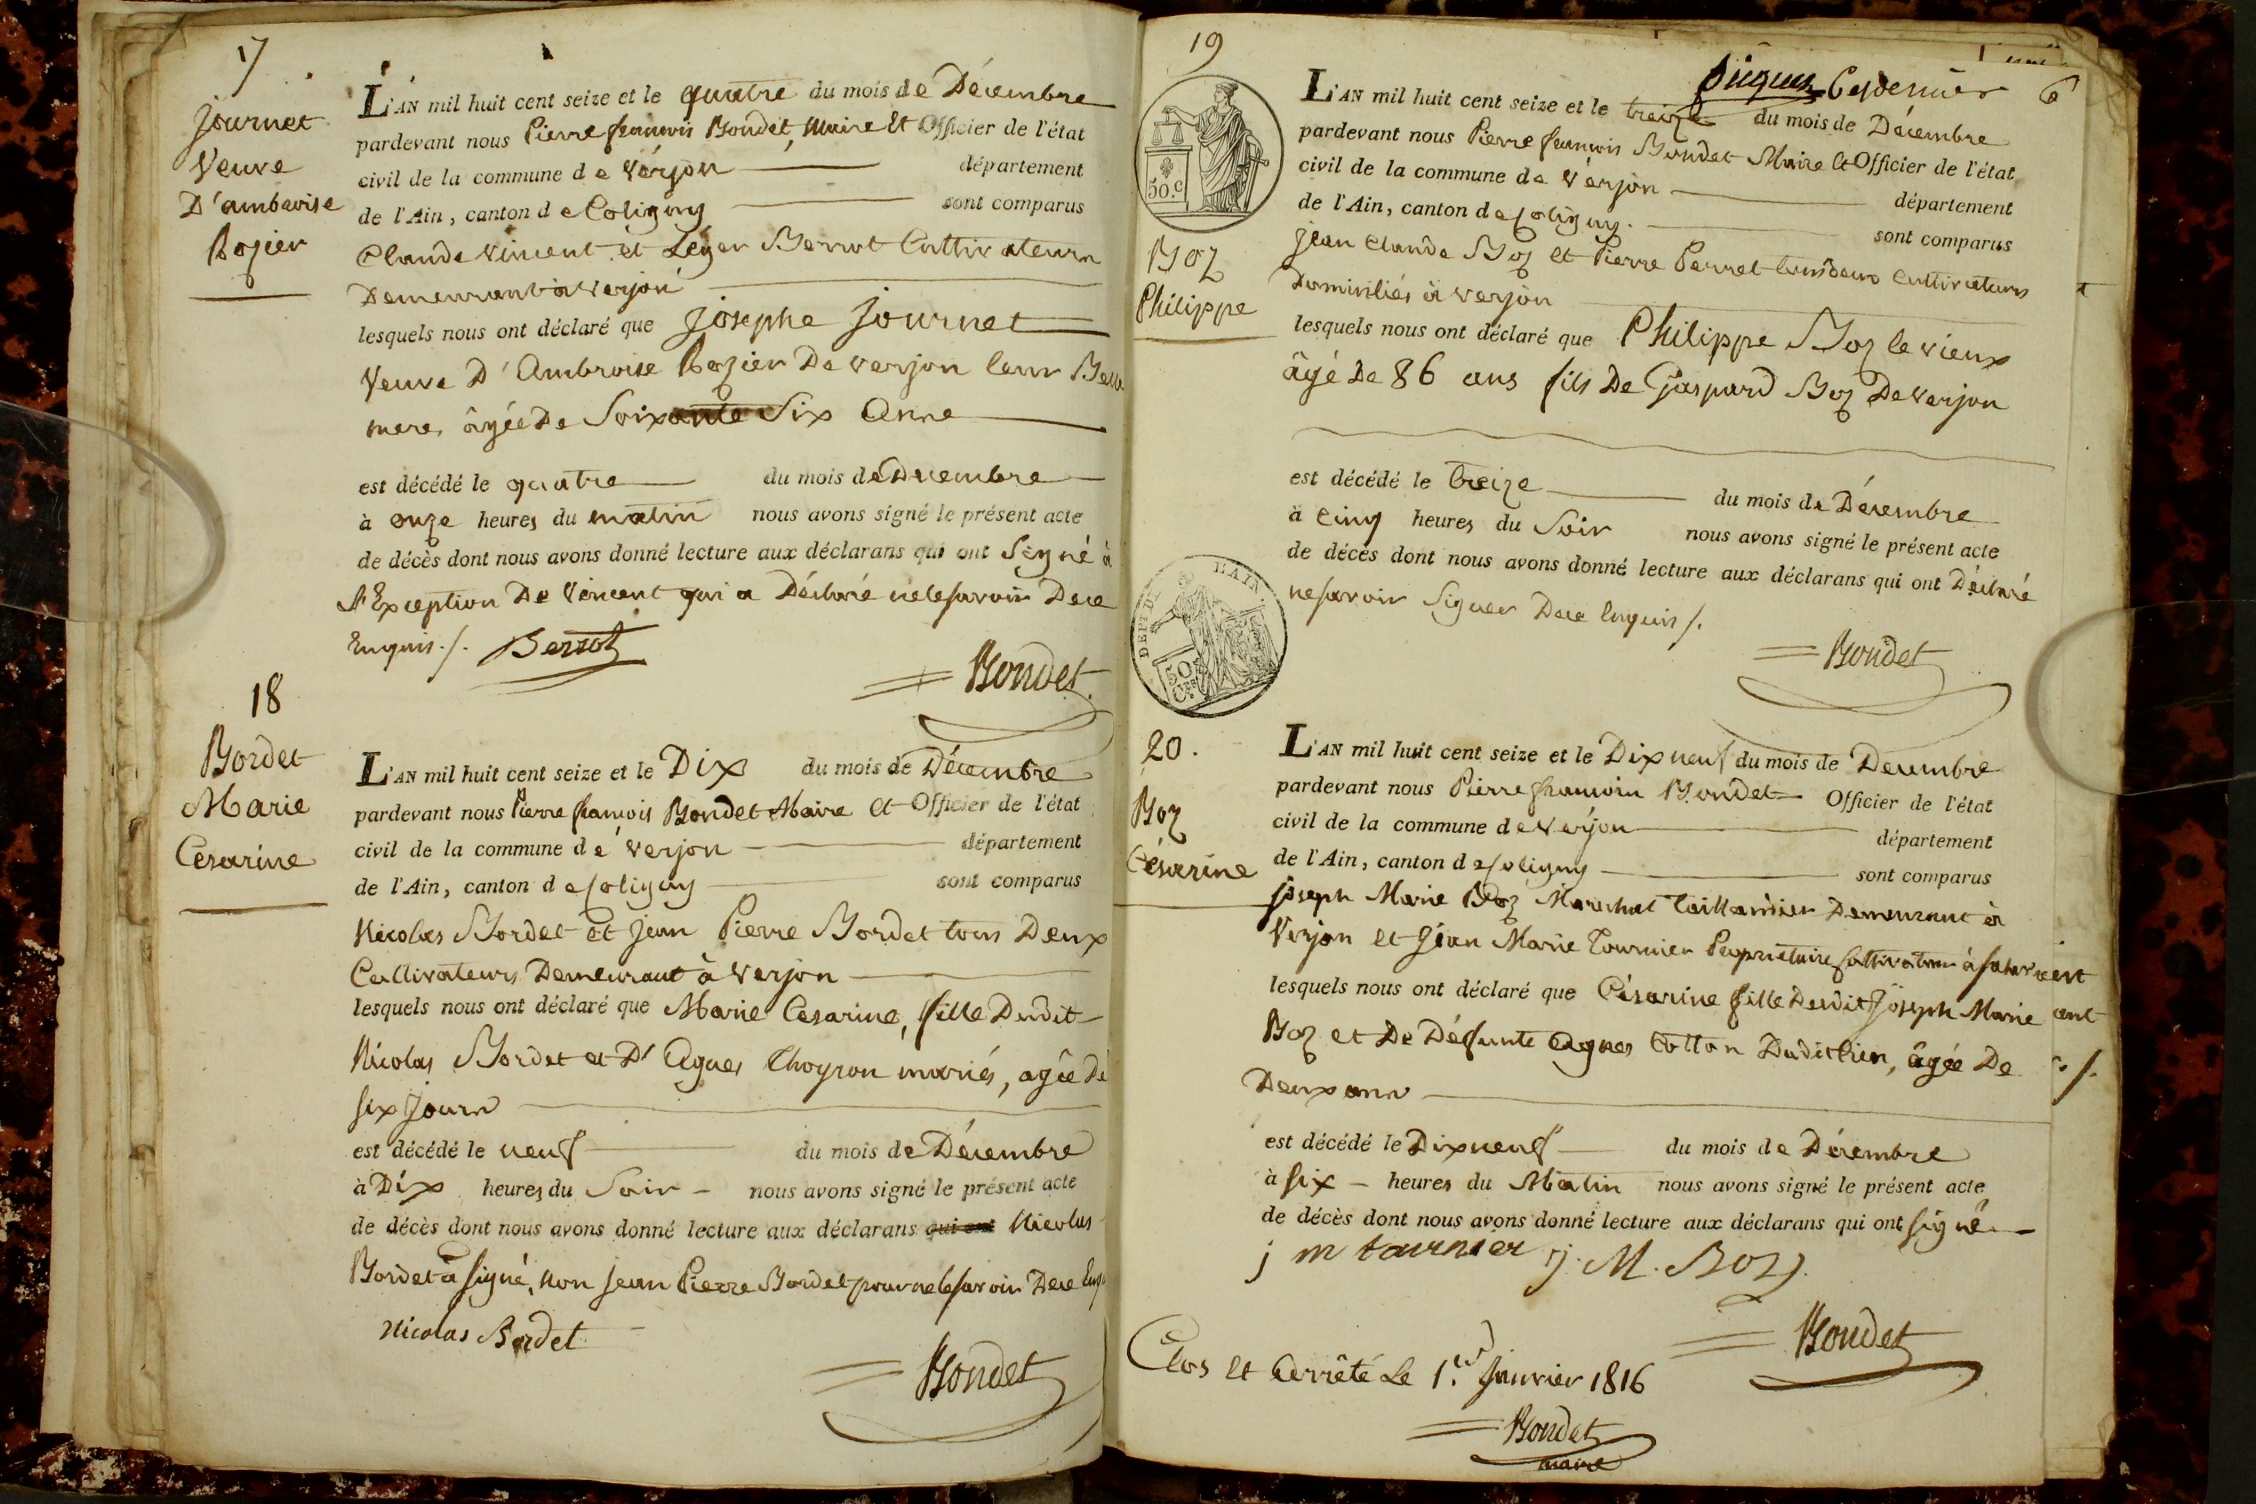 17
Journet
Veuve
D'ambroise
Rozier
L'AN mil huit cent seize et le quatre du mois de Décembre
pardevant nous Pierre françois Bondet, Maire Et Officier de l'état
civil de la commune de Verjon département
de l'Ain, canton de Coligny sont comparus
Claude Vincent et Léger Berrot Cultivateurs
Demeurant à Verjon
lesquels nous ont déclaré que Josephe Journet
Veuve D'Ambroise Rozier De Verjon leur Belle
mere, âgée De Soixante Six Anns
est décédé le quatre du mois de Décembre
à onze heures du matin nous avons signé le présent acte
de décès dont nous avons donné lecture aux déclarans qui ont Signé à
l'Exception De Vincent qui a Déclaré ne le savoir De ce
Enquis ./. Berrot
Bondet
18
Bordet
Marie
Cesarine
L'AN mil huit cent seize et le Dix du mois de Décembre
pardevant nous Pierre françois Bondet Maire et Officier de l'état
civil de la commune de Verjon département
de l'Ain, canton de Coligny sont comparus
Nicolas Bordet et Jean Pierre Bordet tous Deux
Cultivateurs Demeurant à Verjon
lesquels nous ont déclaré que Marie Cesarine, fille Dudit
Nicolas Bordet et D'Agnes Choyron mariés, agée De
six Jours
est décédé le neuf du mois de Décembre
à Dix heures du Soir nous avons signé le présent acte
de décès dont nous avons donné lecture aux déclarans qui ont Nicolas
Bordet a signé, non Jean Pierre Bordet pour ne le savoir De ce Enq
Nicolas Bordet
Bondet
19
6
50.c
Boz
Philippe
L'AN mil huit cent seize et le treize du mois de Décembre
pardevant nous Pierre françois Bondet Maire Et Officier de l'état
civil de la commune de Verjon département
de l'Ain, canton de Coligny. sont comparus
Jean Claude Boz et Pierre Perret tous deux Cultivateurs
Domiciliés à Verjon
lesquels nous ont déclaré que Philippe Boz le vieux
âgé De 86 ans fils De Gaspard Boz De Verjon
est décédé le treize du mois de Décembre
à cinq heures du Soir nous avons signé le présent acte
de décès dont nous avons donné lecture aux déclarans qui ont Déclaré
ne savoir Signer De ce Enquis ./.
DEPT DE L'AIN.
50 Ces
Bondet
20.
Boz
Césarine
L'AN mil huit cent seize et le Dix neuf du mois de Decembre
pardevant nous Pierre francois Bondet Officier de l'état
civil de la commune de Verjon département
de l'Ain, canton de Coligny sont comparus
joseph Marie Boz Marechal taillandier Demeurant à
Verjon et Jean Marie Tournier Propriétaire Cultivateur à
lesquels nous ont déclaré que Césarine fille Dudit Joseph Marie
Boz et De Défunte Agnes Cotton Dudit lieu, âgée De
Deux ans
est décédé le Dix neuf du mois de Décembre
à six heures du Matin nous avons signé le présent acte
de décès dont nous avons donné lecture aux déclarans qui ont signé
j m tournier j. M. Boz
Bondet
Clos et Arrêté Le 1.er Janvier 1816
Bondet
maire